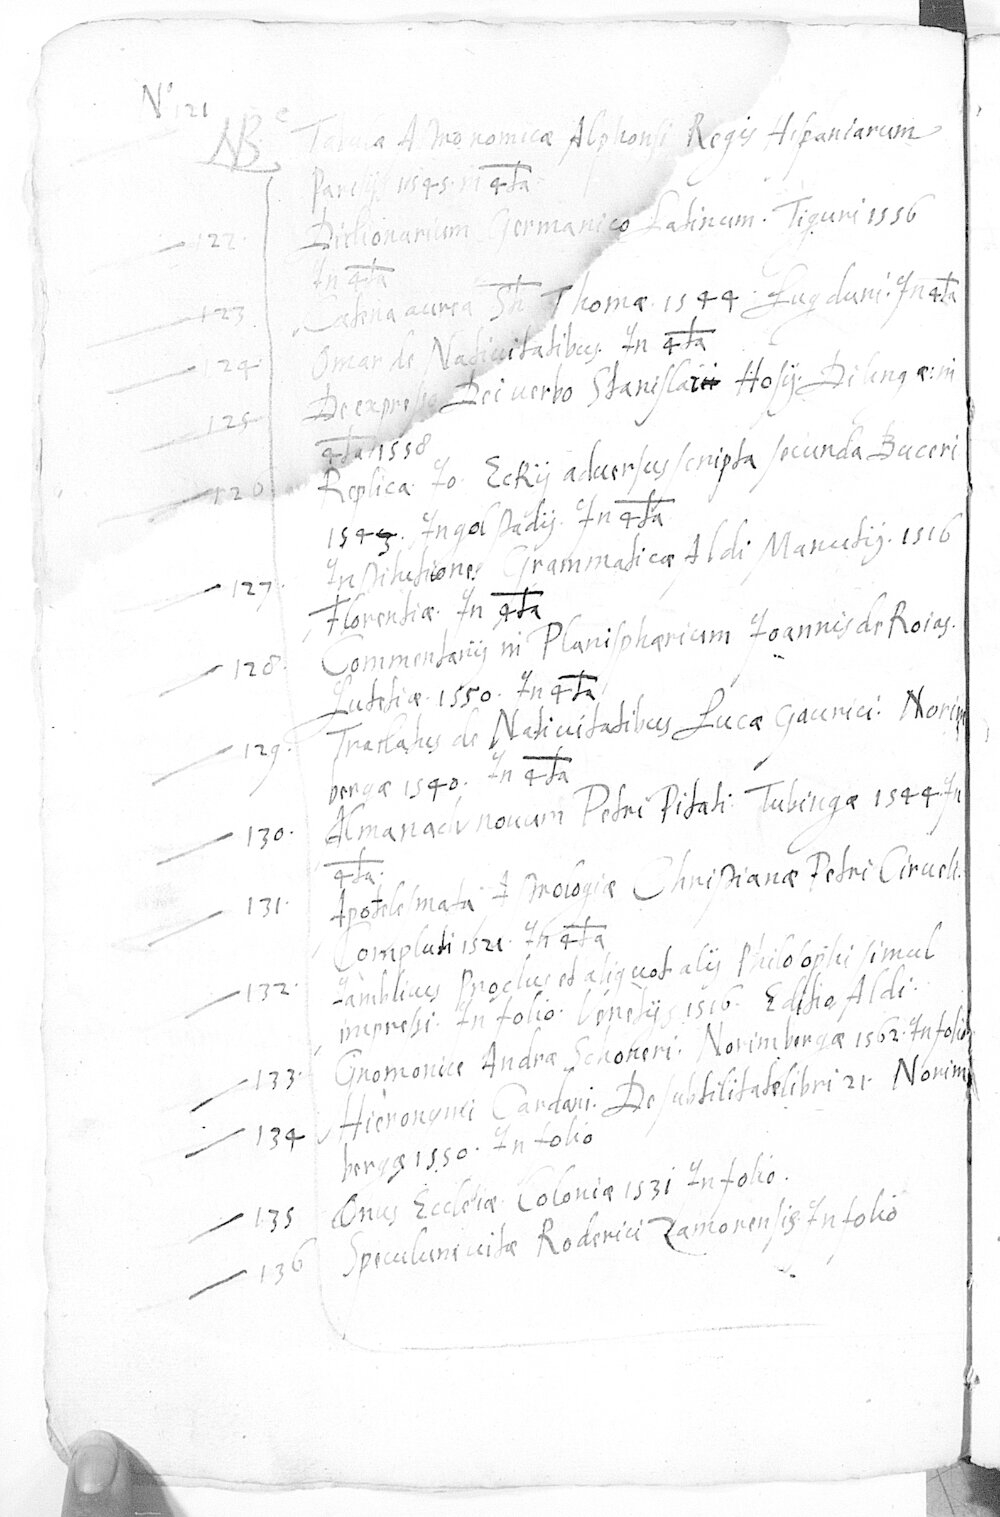 N° 121
NB Tabulæ Astronomicæ Alphonsi Regis Hispaniarum
Parisijs 1545 in 4ta
122. Dictionarium Germanico Latinum. Tiguri 1556
In 4ta
123 Catena aurea Sti Thomæ. 1544. Lugduni. In 4ta
124. Omar de Nativitatibus. In 4ta
125 De expresso Dei verbo Stanislai Hosij. Dilingæ: in
4ta 1558
126 Replica Jo. Eckij adversus scripta secunda Buceri
1543. Ingolstadij. In 4ta
127. Institutiones Grammaticæ Aldi Manutij. 1516
Florentiæ. In 4ta
128. Commentarij in Planisphærium Joannis de Roias.
Lutetiæ. 1550. In 4ta
129. Tractatus de Nativitatibus Lucæ Gaurici. Norim
bergæ 1540. In 4ta
130. Almanach novum Petri Pitati. Tubingæ 1544. In
4ta.
131. Apotelesmata Astrologiæ Christianæ Petri Cirueli.
Compluti 1521. In 4ta
132. Iamblicus Proclus et aliquot alij Philosophi simul
impressi. In folio. Venetijs 1516. Editio Aldi.
133. Gnomonice Andræ Schoneri. Norimbergæ 1562. In folio
134 Hieronymi Cardani. De subtilitate libri 21. Norim
bergæ 1550. In folio
135 Onus Ecclesiæ. Coloniæ 1531 In folio.
136 Speculum vitæ Roderici Zamorensis. In folio